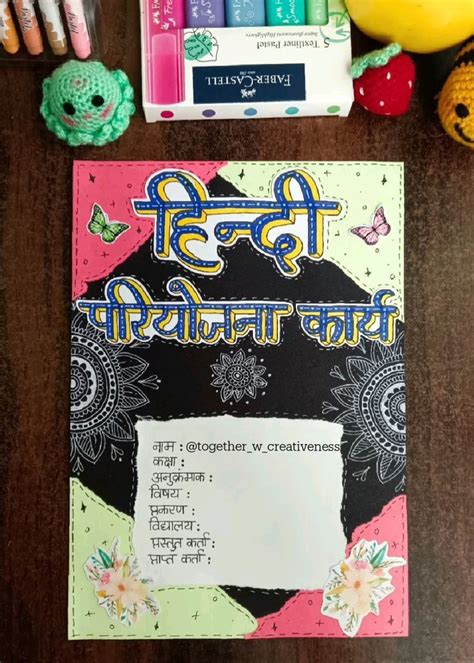 5 Textliner Pastel
FABER-CASTELL
हिन्दी
परियोजना कार्य
नाम : @together_w_creativeness
कक्षा :
अनुक्रमांक :
विषय :
प्रकरण :
विद्यालय :
प्रस्तुत कर्ता :
प्राप्त कर्ता :